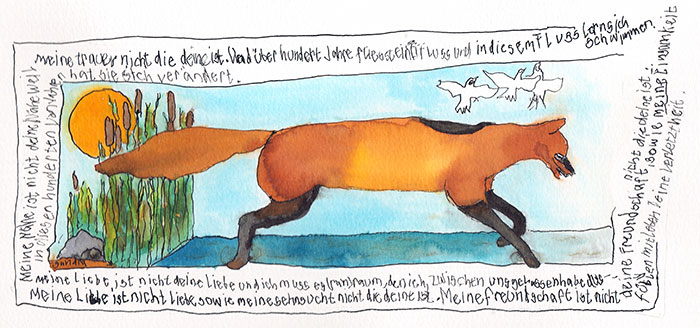 Meine trauer nicht die deine ist. Und über hundert Jahre fliesst ein Fluss und in diesem Fluss lerns ich schwimmen.
hat sie sich verändert.
Meine Nähe ist nicht deine Nähe weil
in diesen hunderten von Jahren
Meine Liebe, ist nicht deine Liebe und ich muss es
den ich, zwischen uns gelassen habe
Meine Liebe ist nicht Liebe, sowie meine sehnsucht nicht die deine ist. Meine freundschaft ist nicht
deine Freundschaft, so wie meine Einsamkeit
nicht die deine ist.
deine Verletztheit.